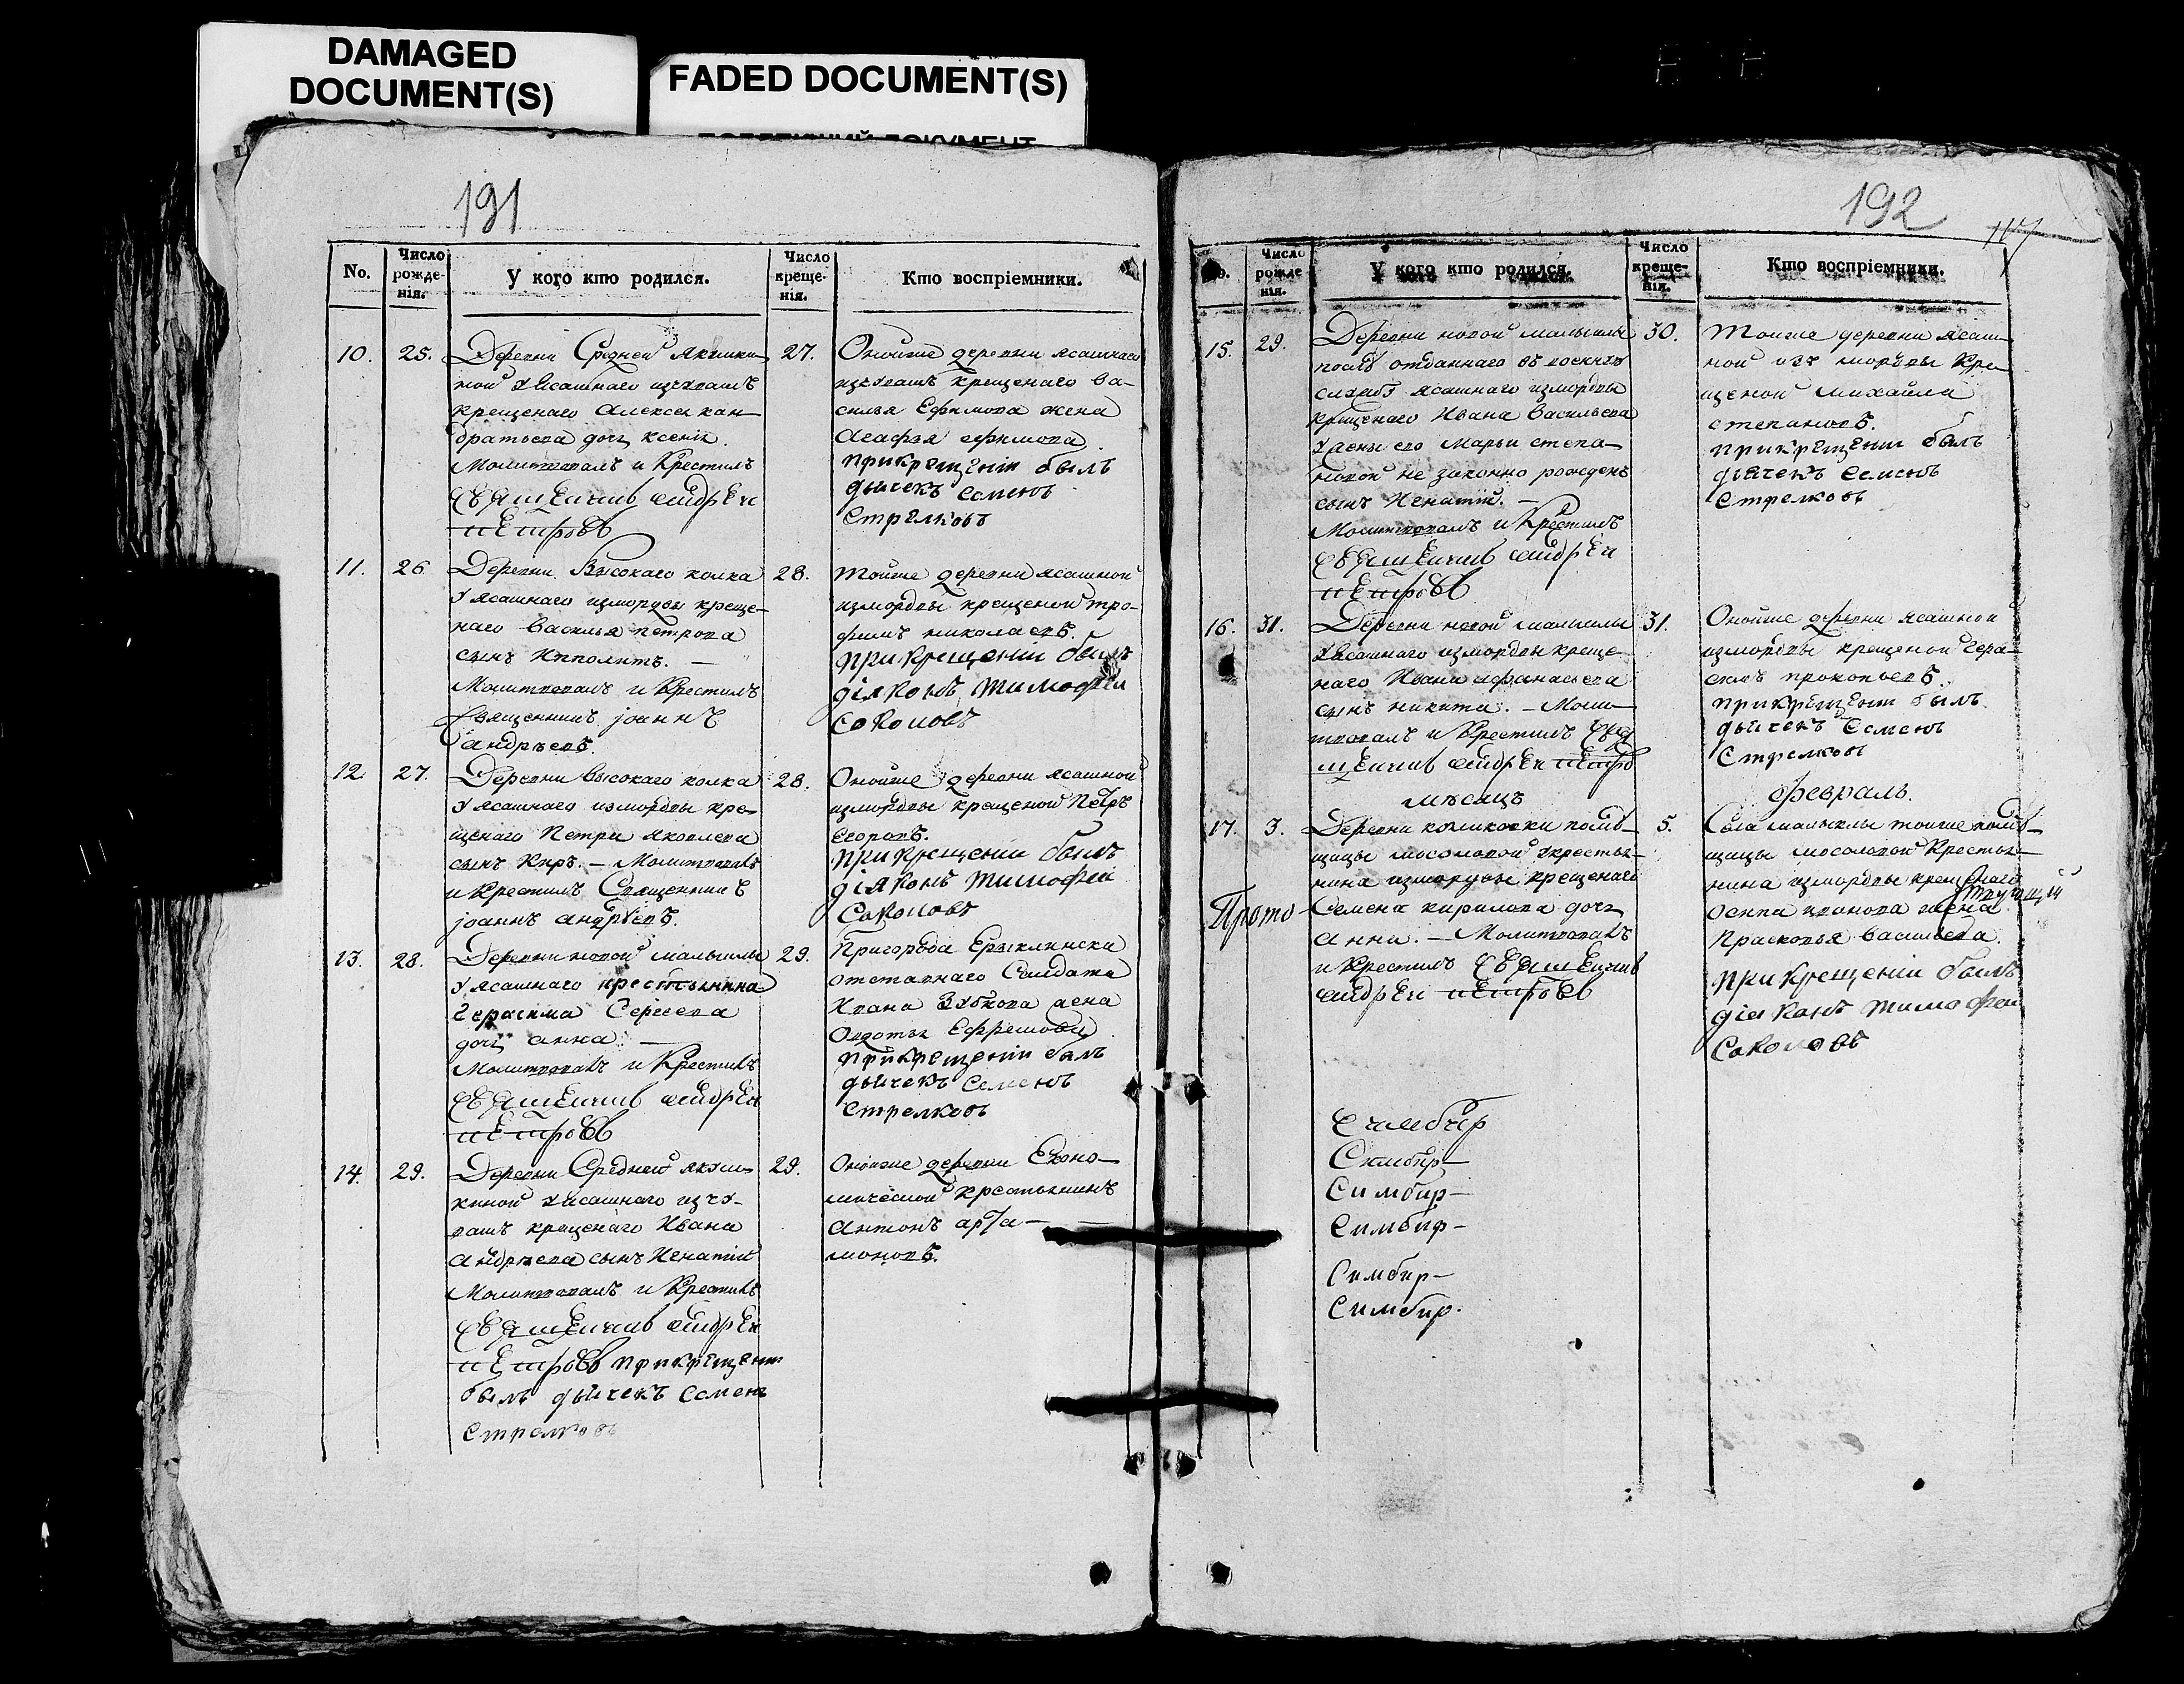 DAMAGED
DOCUMENT(S)
FADED DOCUMENT(S)
191
No.
Число рожденія.
У кого кто родился.
Число крещенія.
Кто воспріемники.
10.
25.
Деревни Средней Якушки
ной у Ясашнаго изчувашъ
крещенаго Алексея кан
дратьева дочь ксенія.
Молитвовалъ и Крестилъ
Священникъ андрей
петровъ
27.
Оной же деревни ясашнаго
изчувашъ крещенаго ва-
силья Ефимова жена
Агафья ефимова.
при крещеніи былъ
дьячекъ Семенъ
Стрелковъ
11.
26
Деревни Высокаго колка
у ясашнаго измордвы креще-
наго василья петрова
сынъ Ипполитъ. —
Молитвовалъ и Крестилъ
Священникъ іоаннъ
андреевъ.
28.
той же деревни ясашной
измордвы крещеной тро-
фимъ николаевъ.
при крещеніи былъ
діяконъ тимофей
соколовъ
12.
27.
Деревни высокаго колка
у ясашнаго измордвы кре-
щенаго Петра яковлева
сынъ Киръ. — Молитвовалъ
и Крестилъ Священникъ
іоаннъ андреевъ.
28.
Оной же деревни ясашной
измордвы крещеной Петръ
егоровъ.
при крещеніи былъ
діяконъ тимофей
Соколовъ
13.
28.
Деревни новой малыклы
у ясашнаго крестьянина
Герасима Сергеева
дочь анна —
Молитвовалъ и Крестилъ
Священникъ андрей
петровъ
29.
Пригорода Ерыклинска
отставнаго Солдата
Ивана Зубкова жена
Овдотья Ефремова
при крещеніи былъ
дьячекъ Семенъ
Стрелковъ
14.
29.
Деревни Средней якуш
киной у ясашнаго изчу-
вашъ крещенаго Ивана
андреева сынъ Игнатій
Молитвовалъ и Крестилъ
Священникъ андрей
петровъ при крещеніи
былъ дьячекъ Семенъ
Стрелковъ
29.
Оной же деревни Еконо-
мической крестьянинъ
Антонъ арта —
моновъ.
192
117
Число рожденія.
У кого кто родился.
Число крещенія.
Кто воспріемники.
15.
29.
Деревни новой малыклы
после отданнаго въ военную
службу ясашнаго измордвы
крещенаго Ивана васильева
у жены его марьи степа
новой не законно рожденъ
сынъ Игнатій. —
Молитвовалъ и Крестилъ
Священникъ андрей
петровъ
30.
той же деревни ясаш
ной изъ мордвы кре
щеной михайла
степановъ.
при крещеніи былъ
дьячекъ Семенъ
Стрелковъ
16.
31.
Деревни новой малыклы
у ясашнаго измордвы креще
наго Ивана афанасьева
сынъ никита. — Моли
твовалъ и Крестилъ Свя
щенникъ андрей петро
31.
Оной же деревни ясашной
измордвы крещеной Гера-
симъ прокопьевъ.
при крещеніи былъ
дьячекъ Семенъ
Стрелковъ
месяцъ
февраль.
17.
3.
Деревни комиковки поме-
щицы мосоловой у крестья-
нина измордвы крещенаго
Семена кирилова дочь
анна. — Молитвовалъ
и Крестилъ Священникъ
андрей петровъ
5.
Села малыклы той же поме-
щицы мосоловой Крестья-
нина измордвы крещенаго
осипа иванова жена
Прасковья васильева.
при крещеніи былъ
діяконъ тимофей
Соколовъ
Прото-
Симбир
Симбир—
Симбир—
Симбир—
Симбир—
Симбир.